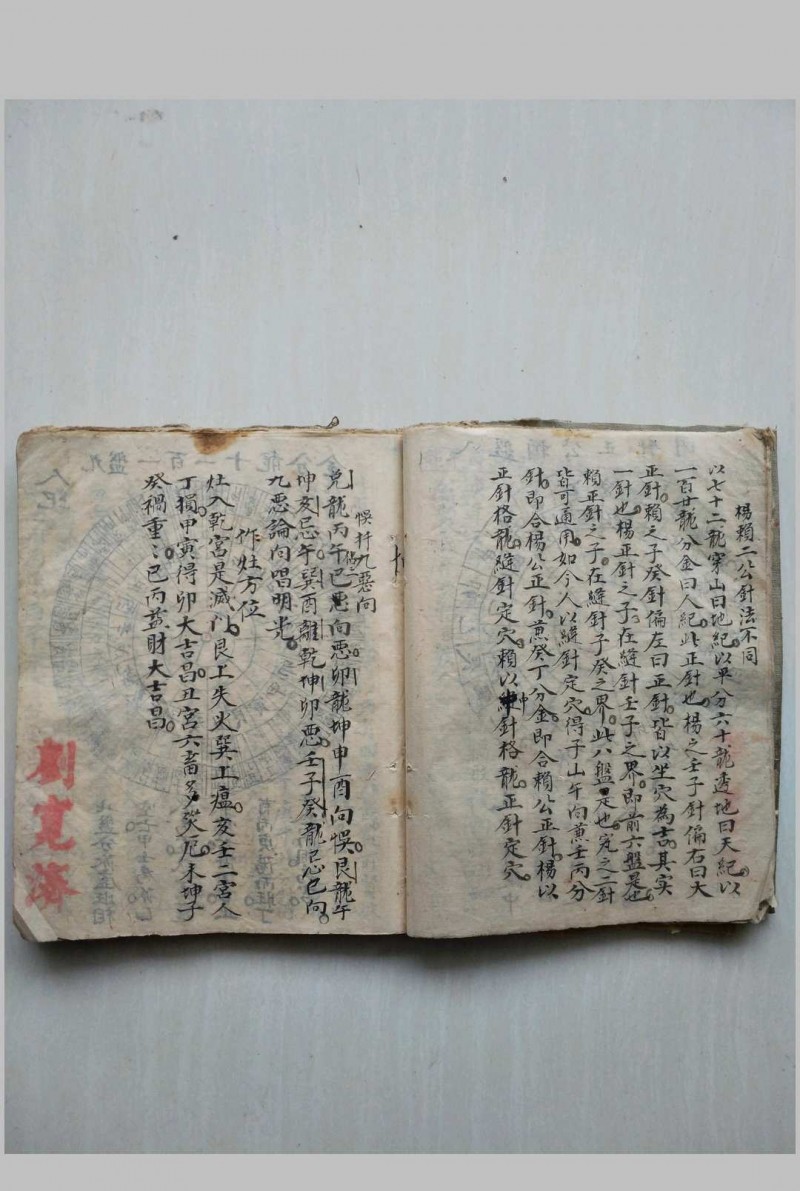 楊賴二公針法不同
以七十二龍穿山曰地紀以平分六十龍透地曰天紀以
一百廿龍分金曰人紀此正針也楊之壬子針偏右曰大
正針賴之子癸針偏左曰正針皆以坐穴為吉其实
一針也楊正針之子在縫針壬子之界即前六盤是也
賴正針之子在縫針子癸之界此八盤是也定之二針
皆可通用如今人以縫針定穴得子山午向兼壬丙分
針即合楊公正針兼癸丁分金即合賴公正針楊以
正針格龍縫針定穴賴以中針格龍正針定穴
悞扦九惡向
兌龍丙午巳惡向惡卯龍坤申酉向悞艮龍午
坤亥忌午巽酉離乾坤卯惡壬子癸龍忌巳向
九惡論向唱明光
作灶方位
灶入乾宮是滅门艮上失火巽上瘟亥壬二宮人
丁損甲寅得卯大吉昌丑宮六畜多災厄未坤子
癸禍重重巳丙蚕財大吉昌
劉寬濟